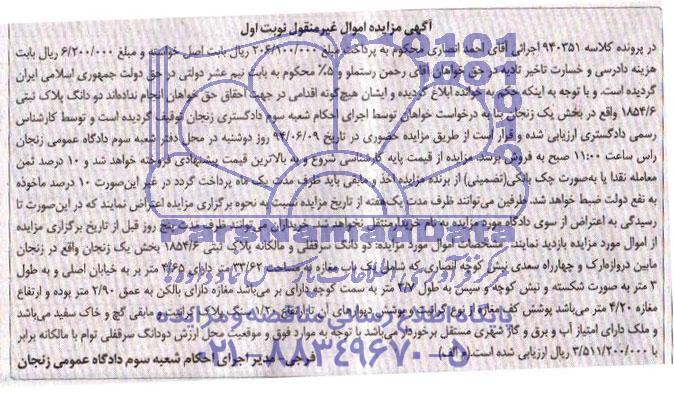 آگهی مزایده اموال غیرمنقول نوبت اول
در پرونده کلاسه ۹۴۰۳۵۱ اجرائی آقای احمد انصاری محکوم به پرداخت مبلغ ۲۰۶/۱۰۰/۰۰۰ ریال بابت اصل خواسته و مبلغ ۶/۲۰۰/۰۰۰ ریال بابت
هزینه دادرسی و خسارت تاخیر تادیه در حق خواهان آقای رحمن رستملو و ۵٪ محکوم به بابت نیم عشر دولتی در حق دولت جمهوری اسلامی ایران
گردیده است. و با توجه به اینکه حکم به خوانده ابلاغ گردیده و ایشان هیچ‌گونه اقدامی در جهت احقاق حق خواهان انجام نداده‌اند دو دانگ پلاک ثبتی
۱۸۵۴/۶ واقع در بخش یک زنجان بنا به درخواست خواهان توسط اجرای احکام شعبه سوم دادگستری زنجان توقیف گردیده است و توسط کارشناس
رسمی دادگستری ارزیابی شده و قرار است از طریق مزایده حضوری در تاریخ ۹۴/۰۶/۰۹ روز دوشنبه در محل دفتر شعبه سوم دادگاه عمومی زنجان
راس ساعت ۱۱:۰۰ صبح به فروش برسد. مزایده از قیمت پایه کارشناسی شروع و به بالاترین قیمت پیشنهادی فروخته خواهد شد و ۱۰ درصد ثمن
معامله نقدا یا به‌صورت چک بانکی(تضمینی) از برنده مزایده اخذ و مابقی باید ظرف مدت یک ماه پرداخت گردد در غیر این‌صورت ۱۰ درصد ماخوذه
به نفع دولت ضبط خواهد شد. طرفین می‌توانند ظرف مدت یک‌هفته از تاریخ مزایده نسبت به نحوه برگزاری مزایده اعتراض نمایند که در این‌صورت تا
رسیدگی به اعتراض از سوی دادگاه مورد مزایده به نام خریدار منتقل نخواهد شد. خریداران می‌توانند ظرف مدت پنج روز قبل از تاریخ برگزاری مزایده
از اموال مورد مزایده بازدید نمایند. مشخصات اموال مورد مزایده: دو دانگ سرقفلی و مالکانه پلاک ثبتی ۱۸۵۴/۶ بخش یک زنجان واقع در زنجان
مابین دروازه‌ارک و چهارراه سعدی نبش کوچه انصاری که شامل یک باب مغازه به مساحت ۳۳/۶۲ متر دارای ۴/۶۵ متر بر به خیابان اصلی و به طول
۳ متر به صورت شکسته و نبش کوچه و سپس به طول ۲/۷ متر به سمت کوچه دارای بر می‌باشد مغازه دارای بالکن به عمق ۲/۹۰ متر بوده و ارتفاع
مغازه ۴/۲۰ متر می‌باشد پوشش کف مغازه از نوع گرانیت و پوشش دیوارهای آن تا ارتفاع ۱/۲۰ سنگ پلاک گرانیت و مابقی گچ و خاک سفید می‌باشد
و ملک دارای امتیاز آب و برق و گاز شهری مستقل برخوردار می‌باشد با توجه به موارد فوق و موقعیت محل ارزش دودانگ سرقفلی توام با مالکانه برابر
با ۳/۵۱۱/۲۰۰/۰۰۰ ریال ارزیابی شده است.(م الف) فرجی- مدیر اجرای احکام شعبه سوم دادگاه عمومی زنجان
ParsNamadData
۰۲۱-۸۸۳۴۹۶۷۰-۵